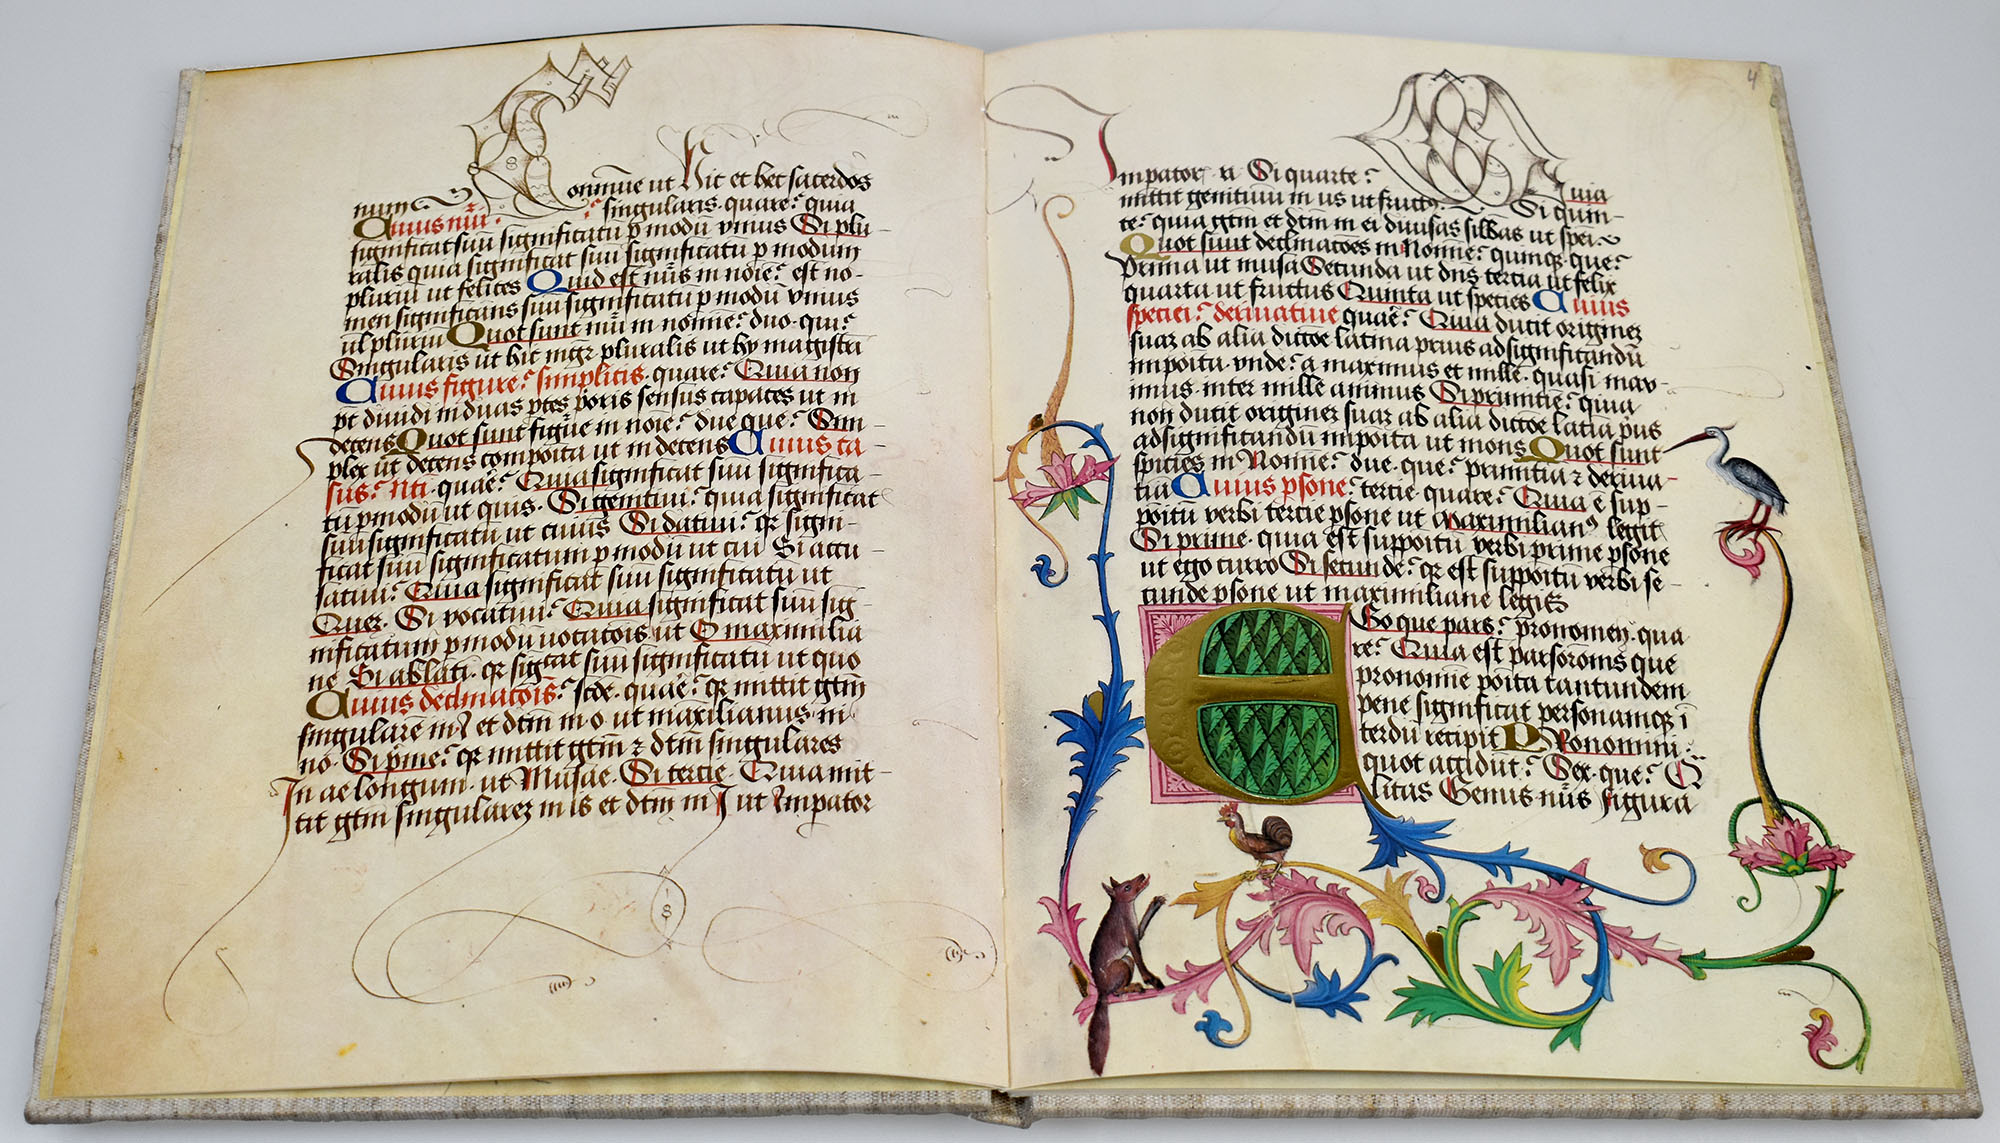 Com̄ue ut Hic et hec sacerdos
num
Cuius nūi? singularis. quare? quia
significat suū significatū p modū vnius Si plu-
ralis quia significat suū significatū p modum
pluriū ut felices Quid est nūs in noīe? est no-
men significans suū significatū p modū vnius
ul pluriū Quot sunt nūi in nomīe? duo. qui?
Singularis ut hic mgr̄ pluralis ut hy magistri
Cuius figure? simplicis. quare? Quia non
pt diuidi in duas ptes pōris sensus capaces ut in
decens Quot sunt figūe in noīe? due que? Sim-
plex ut decens compoīta ut indecens Cuius ca-
sus? Nti. quāe? Quia significat suū significa-
tū p modū ut quis. Si genitiui? quia significat
suū significatū ut cuius Si datiui? qr signi-
ficat suū significatum p modū ut cui Si accu-
satiui? Quia significat suū significatū ut
Quez. Si vocatiui? Quia significat suū sig-
nificatum p modū uocatōis ut O maximilia
ne Si ablati. qr sigcat suū significatū ut quo
Cuius declinatōis? scde. quāe? qr mittit gtm̄
singularē in J et dtm̄ in o ut maxilianus. ni
no. Si p̄me? qr mittit gtm̄ z dtm̄ singulares
In ae longum. ut Musae. Si tercie. Quia mit-
tit gtm̄ singularez in is et dtm̄ in J ut Impator
4
Impator ri Si quarte? Quia
mittit genitiuū in us ut fructus. Si quin-
te? quia gtm̄ et dtm̄ in ei diuisas sillbas ut spei
Quot sunt declinacōes in Nomīe? quinqz que?
Prima ut musa Secunda ut dn̄s tercia ut felix
quarta ut fructus Quinta ut species Cuius
speciei? deriuatiue quāe? Quia ducit originez
suaz ab alia dictōe latina prius ad significandū
impoīta. vnde? a maximus et mille. quasi max-
imus inter mille animus Si pm̄itie? quia
non ducit originez suaz ab alia dictōe latīa pus
ad significandū impoīta ut mons Quot sunt
species in Nomīe? due. que? primitia z deriua-
tia Cuius psone? tercie. quare? Quia ē sup-
poītū verbi tercie psone ut Maximilian9 legit
Si prime. quia est suppoītū verbi prime psone
ut ego curro Si secunde? qr est suppoītū verbi se-
cunde psone ut maximiliane legis
Ego que pars? pronomen. qua
re? Quia est pars orōnis que
pronomīe poīta tantundem
pene significat personamqz ī
terdū recipit Pronomini
quot accidūt? Sex. que? Q
litas Genus nūs figura